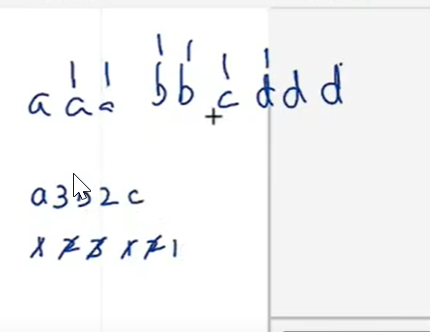 a a a b b c d d d
a 3 b 2 c
1 2 3 1 2 1